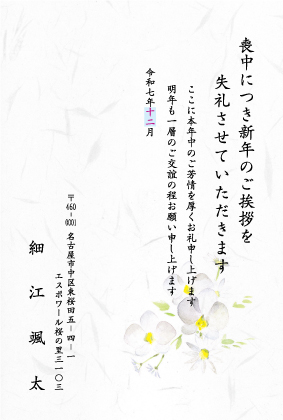 喪中につき新年のご挨拶を
失礼させていただきます
ここに本年中のご芳情を厚くお礼申し上げます
明年も一層のご交誼の程お願い申し上げます
令和七年十二月
〒460-0001
名古屋市中区東桜田五-四-一
エスポワール桜の里三一〇三
細江颯太